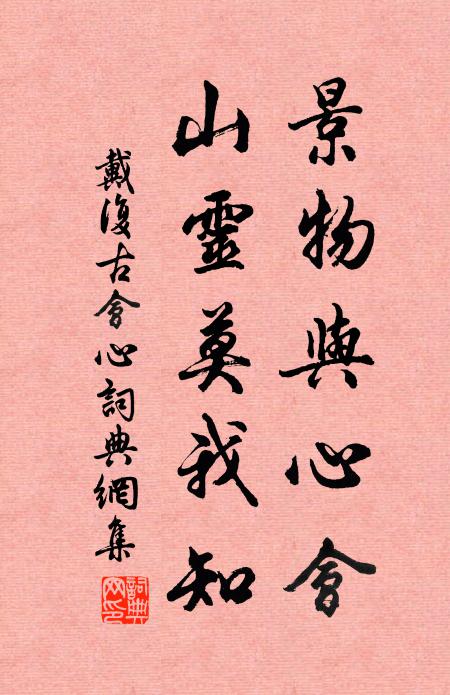 景物與心會
山靈莫我知
戴復古會心詞典網集
詞典网印